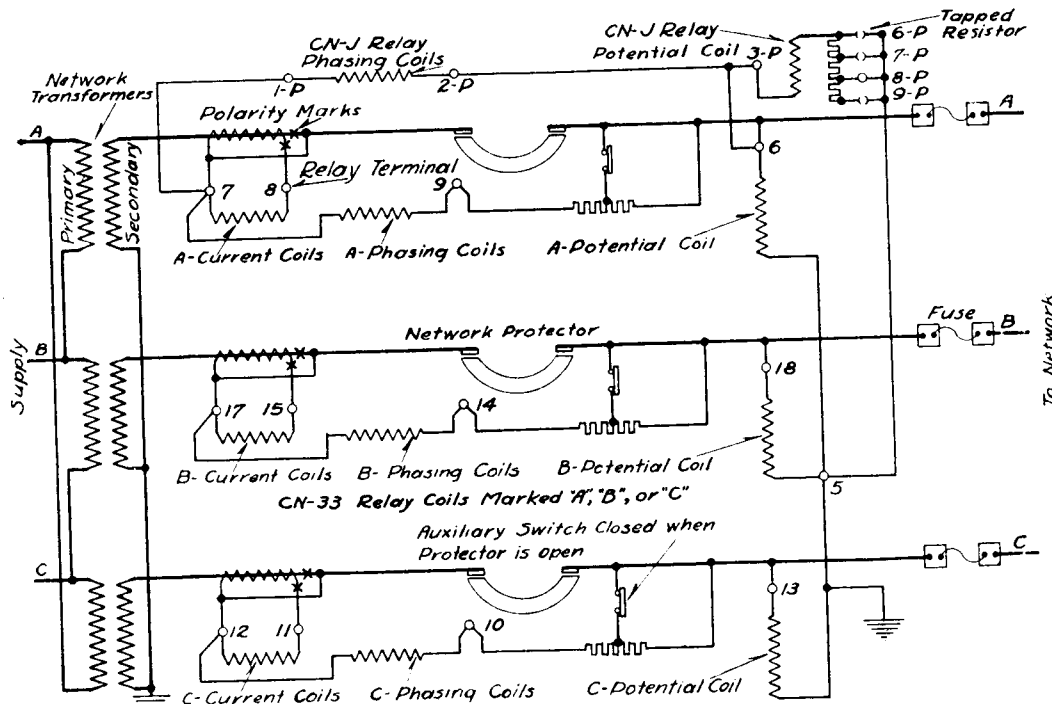 CN-J Relay
Phasing Coils
CN-J Relay
Potential Coil
3-P
Tapped
Resistor
6-P
7-P
8-P
9-P
Network
Transformers
1-P
2-P
Polarity Marks
A
A
Primary
Secondary
7
8
Relay Terminal
9
6
A-Current Coils
A-Phasing Coils
A-Potential Coil
Supply
B
Network Protector
Fuse
B
To Network
17
15
14
18
B-Current Coils
B-Phasing Coils
B-Potential Coil
5
CN-33 Relay Coils Marked "A", "B", or "C"
Auxiliary Switch Closed when
Protector is open
C
C
12
11
10
13
C-Current Coils
C-Phasing Coils
C-Potential Coil